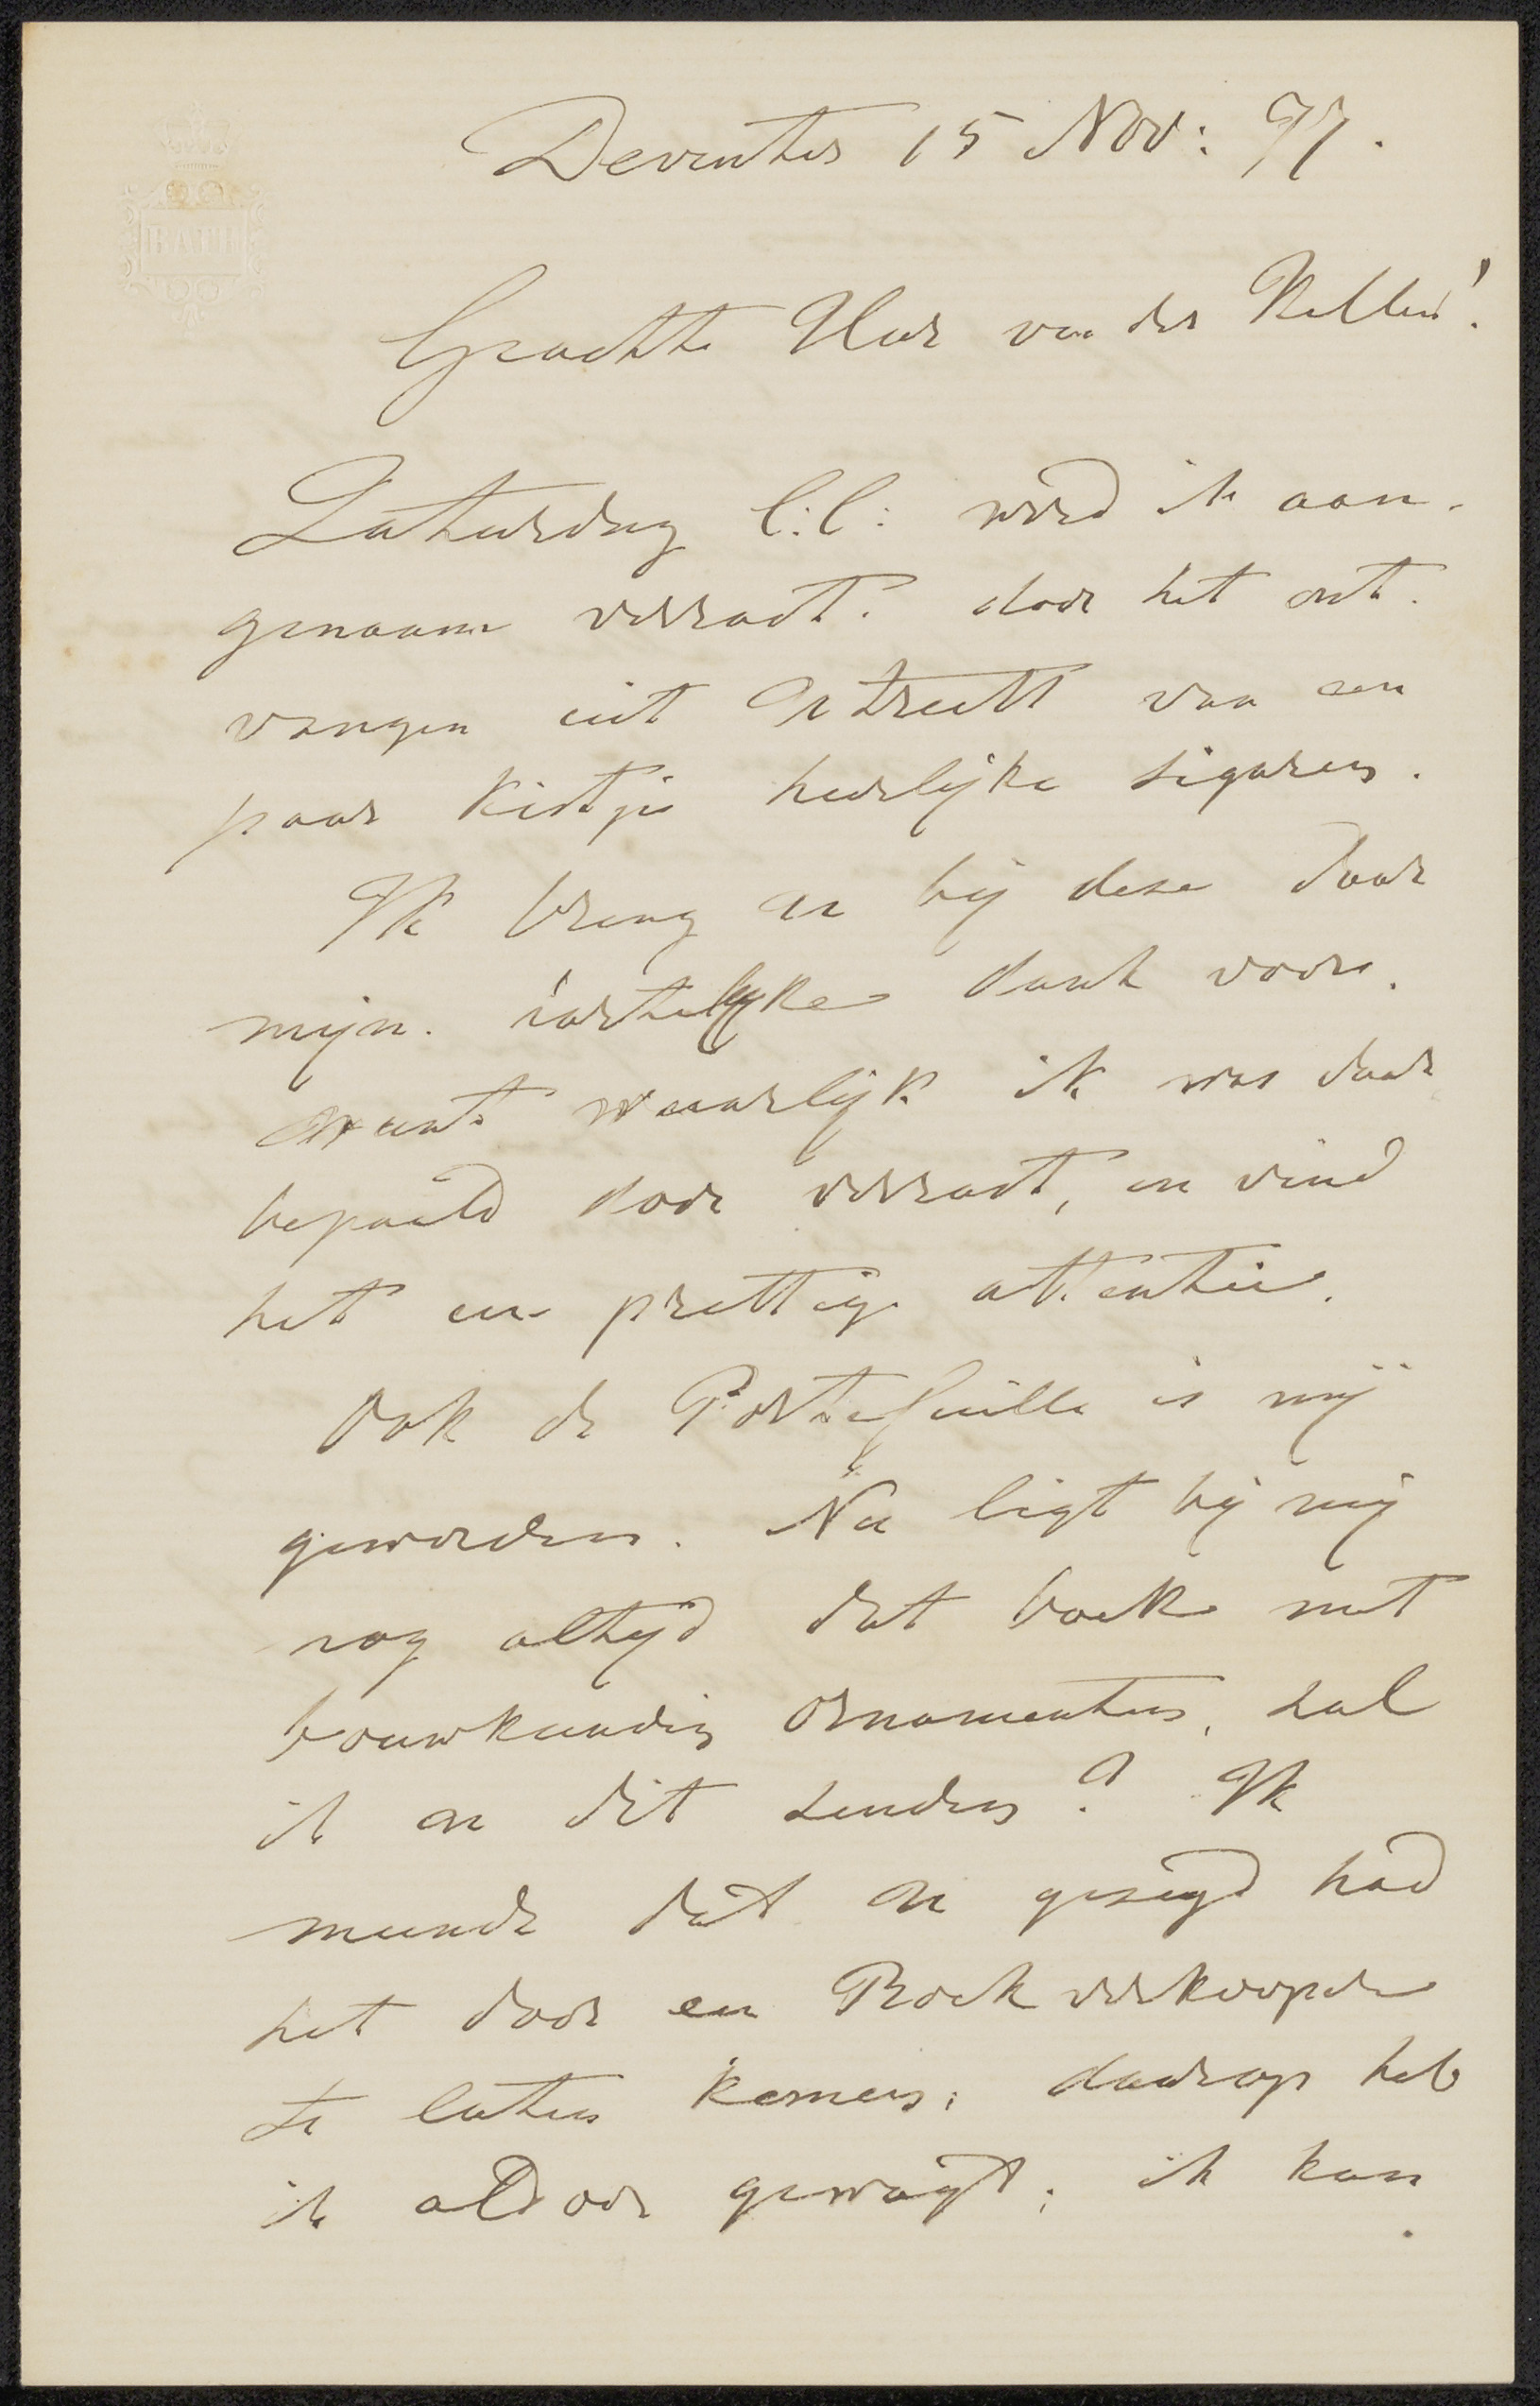 BATH
Deventer 15 Nov: 77.
Geachte Heer van der Kellen!
Zaturdag l:l: werd ik aan-
genaam verrast. door het ont-
vangen uit Utrecht van een
paar kistjes heerlijke sigaren.
Ik breng u bij deze daar
mijn hartelijke dank voor.
want waarlijk ik was daar
bepaald door verrast, en vind
het een prettige attentie.
Ook de Portefeuille is mij
geworden. Nu ligt bij mij
nog altijd dat boek met
bouwkundig ornamenten, zal
ik u dit zenden? Ik
meende dat u gezegd had
het door een Boekverkooper
te laten komen; daarop heb
ik aldoor gewagt; ik kan